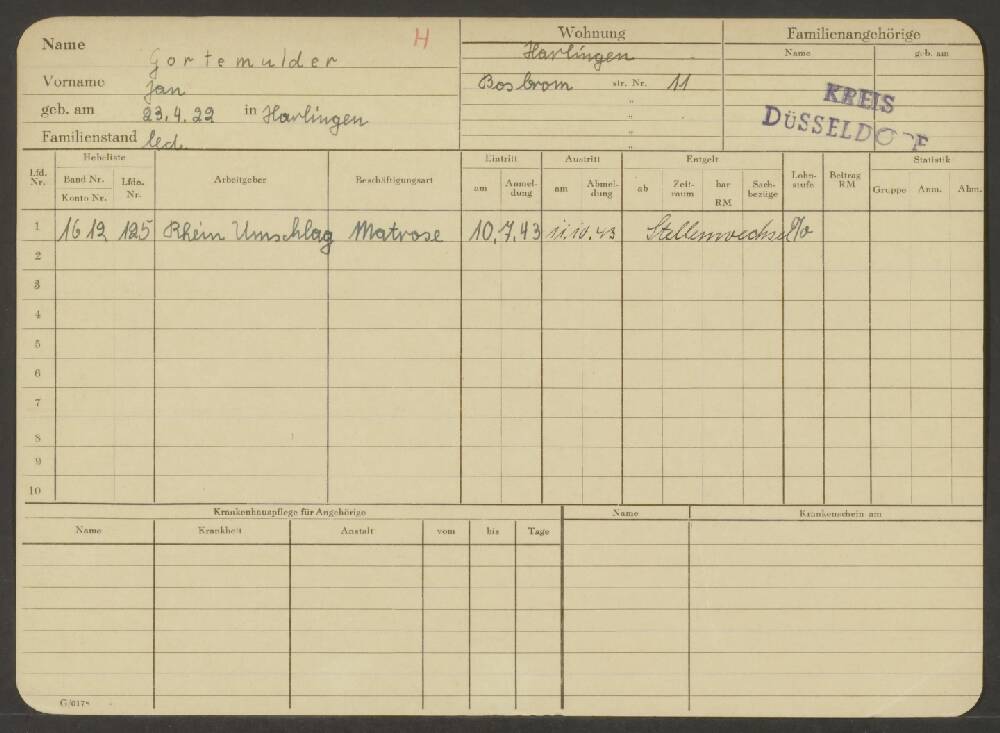 Name Gortemulder H
Vorname Jan
geb. am 23.4.22 in Harlingen
Familienstand led.
Wohnung
Harlingen
str. Nr. 11
"
"
"
"
Familienangehörige
Name geb. am
KREIS
DÜSSELDORF
Lfd. Nr. Hebeliste Arbeitgeber Beschäftigungsart Eintritt Austritt Entgelt Lohn-stufe Beitrag RM Statistik
Band Nr. Konto Nr. Lfde. Nr. am Anmel-dung am Abmel-dung ab Zeit-raum bar RM Sach-bezüge Gruppe Anm. Abm.
1 16 12 125 Rhein Umschlag Matrose 10.7.43 11.10.43 Stellenwechsel
2
3
4
5
6
7
8
9
10
Krankenhauspflege für Angehörige
Name Krankheit Anstalt vom bis Tage
Name Krankenschein am
G/0178